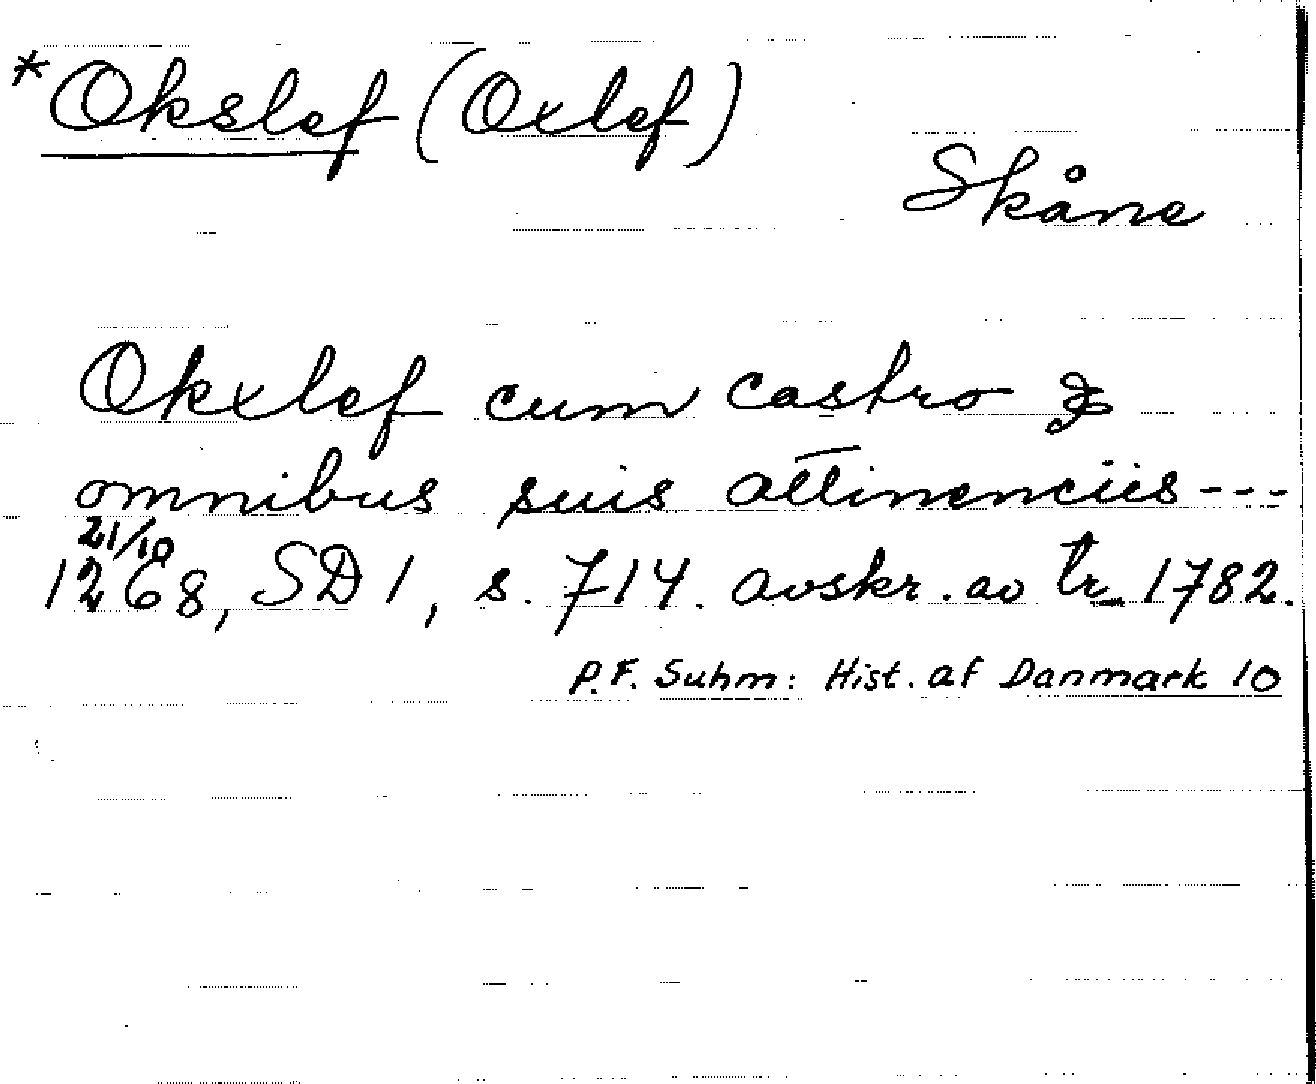 *Okslef (Oxlef)
Skåne
Okxlef cum castro &
omnibus suis attinenciis---
21/10
1268, SD 1, s. 714. avskr. av tr. 1782.
P.F. Suhm: Hist. af Danmark 10